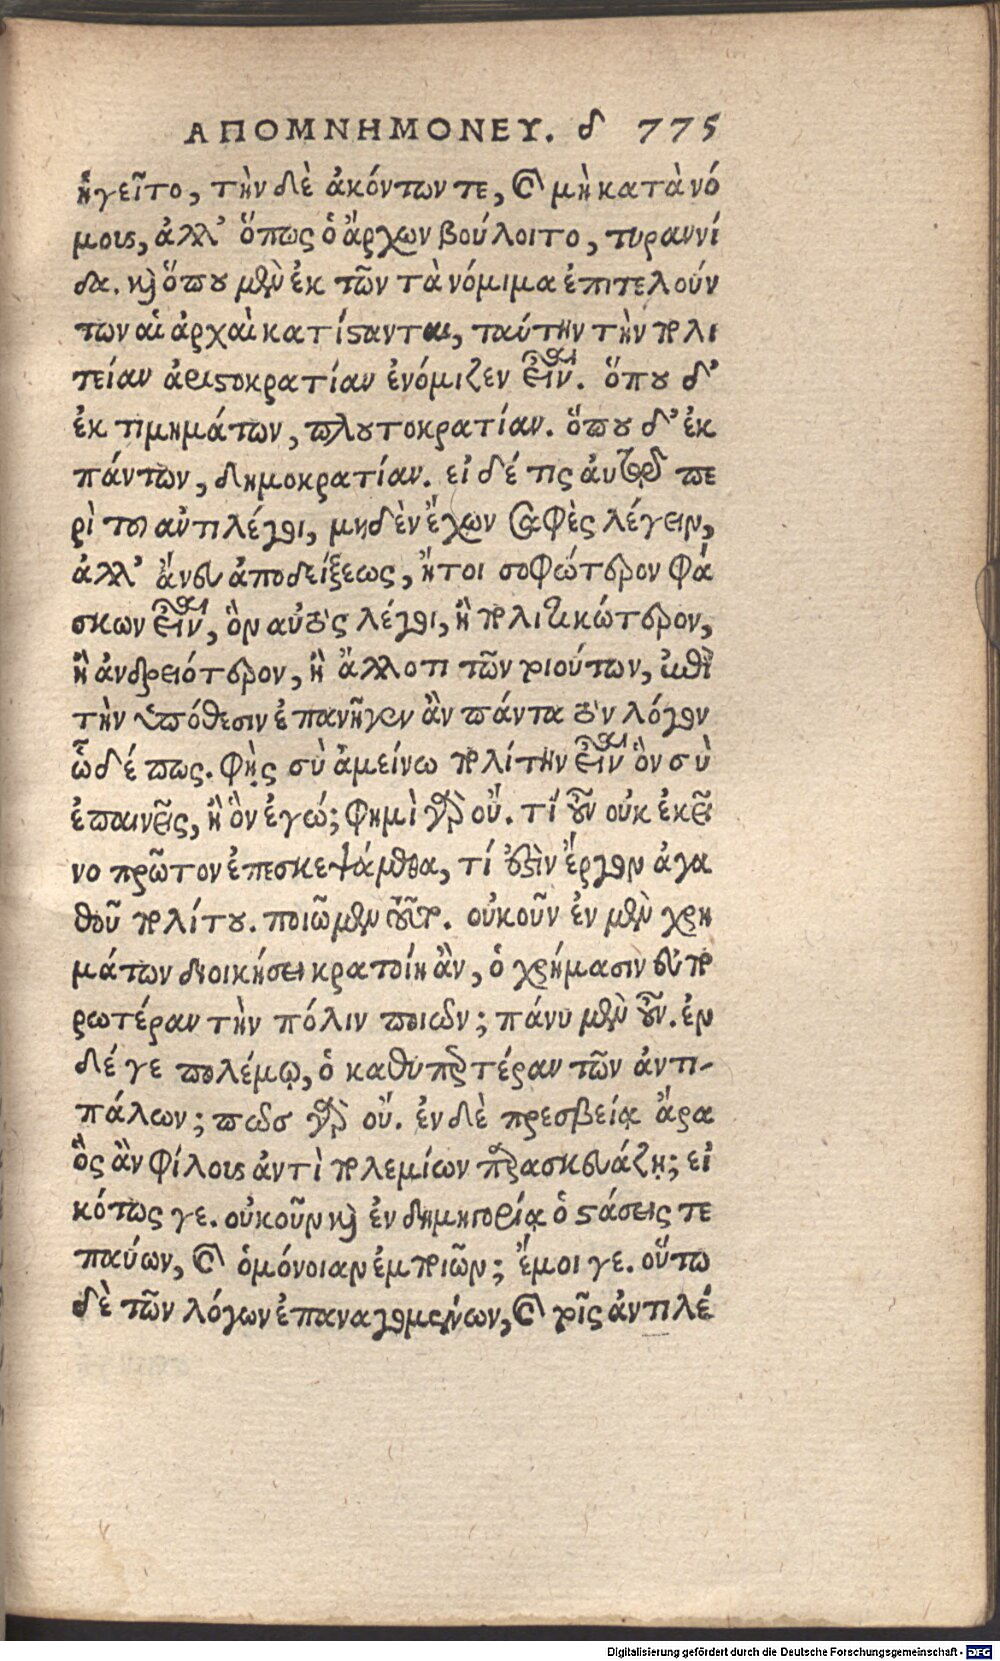 ΑΠΟΜΝΗΜΟΝΕΥ. δ 775
ἡγεῖτο, τὴν δὲ ἀκόντων τε, καὶ μὴ κατὰ νό
μους, ἀλλ’ ὅπως ὁ ἄρχων βούλοιτο, τυραννί
δα. καὶ ὅπου μὲν ἐκ τῶν τὰ νόμιμα ἐπιτελούν
των αἱ ἀρχαὶ κατίσανται, ταύτην τὴν πολι
τείαν ἀριστοκρατίαν ἐνόμιζεν εἶναι. ὅπου δ’
ἐκ τιμημάτων, πλουτοκρατίαν. ὅπου δ’ ἐκ
πάντων, δημοκρατίαν. εἰ δέ τις αὐτῷ πε
ρὶ του ἀντιλέγοι, μηδὲν ἔχων σαφὲς λέγειν,
ἀλλ’ ἄνευ ἀποδείξεως, ἤτοι σοφώτερον φά
σκων εἶναι, ὃν αὐτὸς λέγοι, ἢ πολιτικώτερον,
ἢ ἀνδρειότερον, ἢ ἄλλο τι τῶν τοιούτων, ἐπὶ
τὴν ὑπόθεσιν ἐπανῆγεν ἂν πάντα τὸν λόγον
ὧδέ πως. φῂς σὺ ἀμείνω πολίτην εἶναι ὃν σὺ
ἐπαινεῖς, ἢ ὃν ἐγώ; φημὶ γὰρ οὖ. τί οὖν οὐκ ἐκεῖ
νο πρῶτον ἐπεσκεψάμεθα, τί ἐστὶν ἔργον ἀγα
θοῦ πολίτου. ποιῶμεν τοῦτο. οὐκοῦν ἐν μὲν χρη
μάτων διοικήσει κρατοίη ἂν, ὁ χρήμασιν εὐπο
ρωτέραν τὴν πόλιν ποιῶν; πάνυ μὲν οὖν. ἐν
δέ γε πολέμῳ, ὁ καθυπερτέραν τῶν ἀντι-
πάλων; πῶσ γὰρ οὔ. ἐν δὲ πρεσβείᾳ ἄρα
ὃς ἂν φίλους ἀντὶ πολεμίων παρασκευάζῃ; εἰ
κότως γε. οὐκοῦν καὶ ἐν δημηγορίᾳ ὁ στάσεις τε
παύων, καὶ ὁμόνοιαν ἐμποιῶν; ἔμοι γε. οὕτω
δὲ τῶν λόγων ἐπαναγομένων, καὶ τοῖς ἀντιλέ
Digitalisierung gefördert durch die Deutsche Forschungsgemeinschaft - DFG